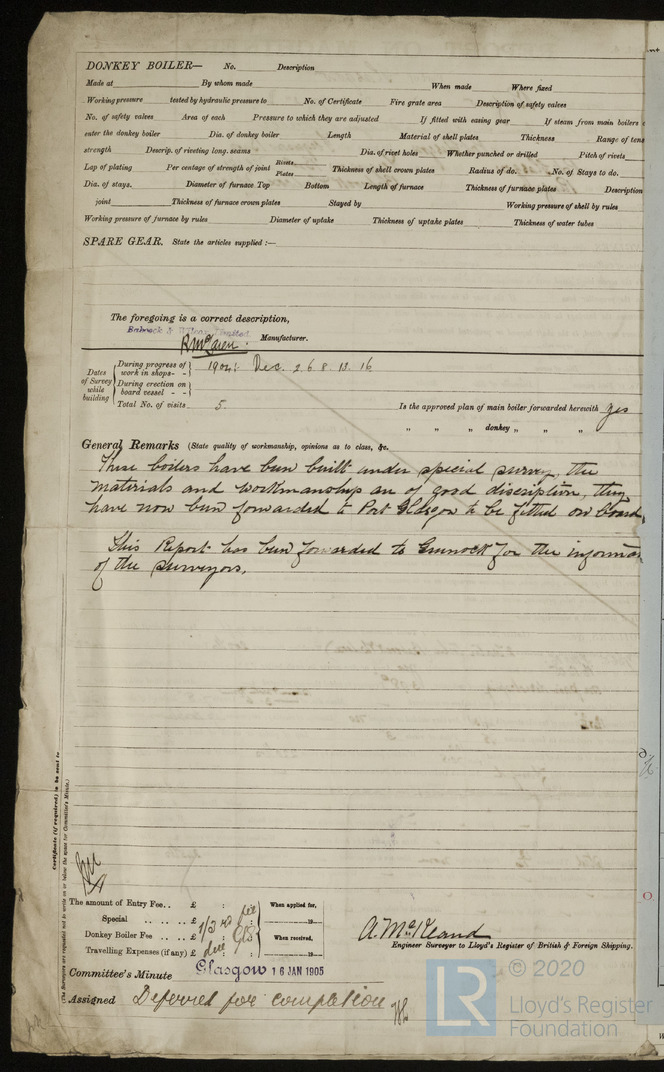 DONKEY BOILER— No. Description
Made at By whom made When made Where fixed
Working pressure tested by hydraulic pressure to No. of Certificate Fire grate area Description of safety valves
No. of safety valves Area of each Pressure to which they are adjusted If fitted with easing gear If steam from main boilers c
enter the donkey boiler Dia. of donkey boiler Length Material of shell plates Thickness Range of tens
strength Descrip. of riveting long. seams Dia. of rivet holes Whether punched or drilled Pitch of rivets
Lap of plating Per centage of strength of joint Rivets Plates Thickness of shell crown plates Radius of do. No. of Stays to do.
Dia. of stays. Diameter of furnace Top Bottom Length of furnace Thickness of furnace plates Description
joint Thickness of furnace crown plates Stayed by Working pressure of shell by rules
Working pressure of furnace by rules Diameter of uptake Thickness of uptake plates Thickness of water tubes
SPARE GEAR. State the articles supplied :—
The foregoing is a correct description,
Babcock & Wilcox Limited
Manufacturer.
Dates of Survey while building
During progress of work in shops - - 1904: Dec. 2. 6. 8. 13. 16
During erection on board vessel - -
Total No. of visits 5. Is the approved plan of main boiler forwarded herewith yes
" " " donkey " " "
General Remarks (State quality of workmanship, opinions as to class, &c.
These boilers have been built under special survey, the
materials and workmanship are of good discription, they
have now been forwarded to Port Glasgow to be fitted on board,
This Report has been forwarded to Greenock for the informat
of the surveyors.
Certificate (if required) to be sent to
(The Surveyors are requested not to write on or below the space for Committee's Minute.)
The amount of Entry Fee.. £ : : When applied for,
Special .. .. .. £ : : 19
Donkey Boiler Fee .. .. £ : : When received,
Travelling Expenses (if any) £ : : 19
1/3 rd fee
due
A. McKeand
Engineer Surveyor to Lloyd's Register of British & Foreign Shipping.
Committee's Minute Glasgow 16 JAN 1905
Assigned Deferred for completion
© 2020
LR
Lloyd's Register
Foundation